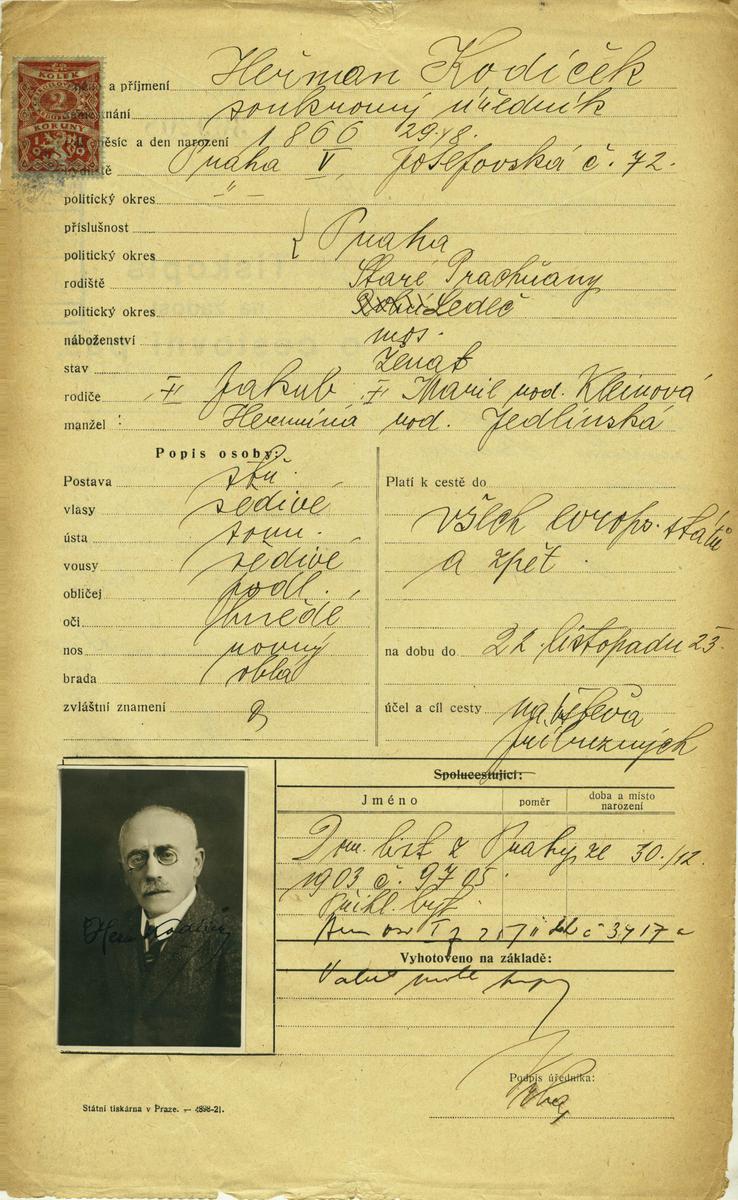 KOLEK
2
KORUNY
a příjmení Heřman Kodíček
soukromý úředník
měsíc a den narození 1866 29./8.
Praha V, Josefovská č. 72.
politický okres "
příslušnost
politický okres } Praha
rodiště Staré Prachňany
politický okres Ledeč
náboženství mos.
stav ženat
rodiče Jakub Marie rod. Kleinová
manžel: Hermina rod. Jedlinská
Popis osoby:
Postava stř.
vlasy šedivé
ústa soum.
vousy šedivé
obličej podl.
oči hnědé
nos rovný
brada oblá
zvláštní znamení
Platí k cestě do
všech evrops. států
a zpět.
na dobu do 22. listopadu 23.
účel a cíl cesty návštěva
příbuzných
Spolucestující:
Jméno poměr doba a místo
narození
Dom. list z Prahy ze 30./12.
1903 č. 9705.
Přihl. byt.
č 3417
Vyhotoveno na základě:
Podpis úředníka:
Státní tiskárna v Praze. —